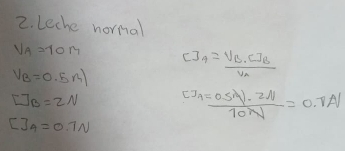 2. Leche normal
VA = 10 m
VB = 0.5 ml
[]B = 2N
[]A = 0.1N
[]A = VB . []B
VA
[]A = 0.5ml . 2N = 0.1N
10ml